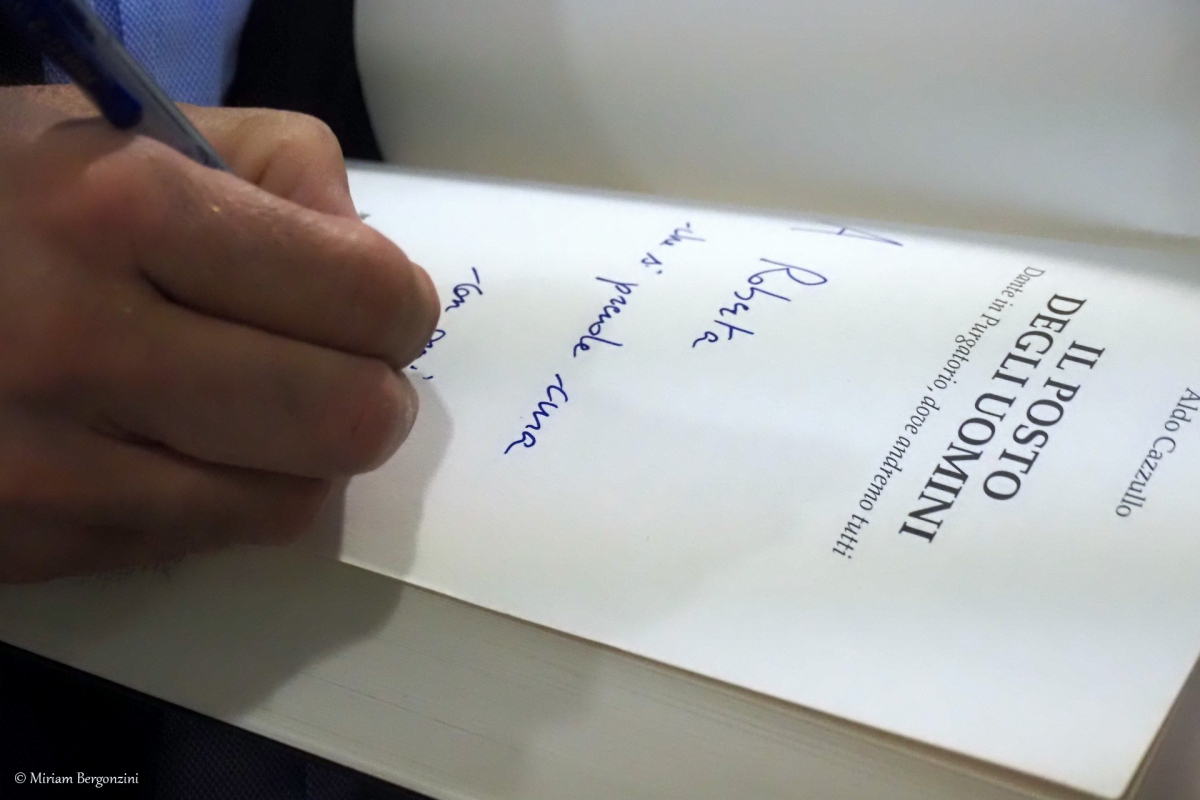 Aldo Cazzullo
IL POSTO
DEGLI UOMINI
Dante in Purgatorio, dove andremo tutti
A
Roberta
che si prende cura
con
© Miriam Bergonzini